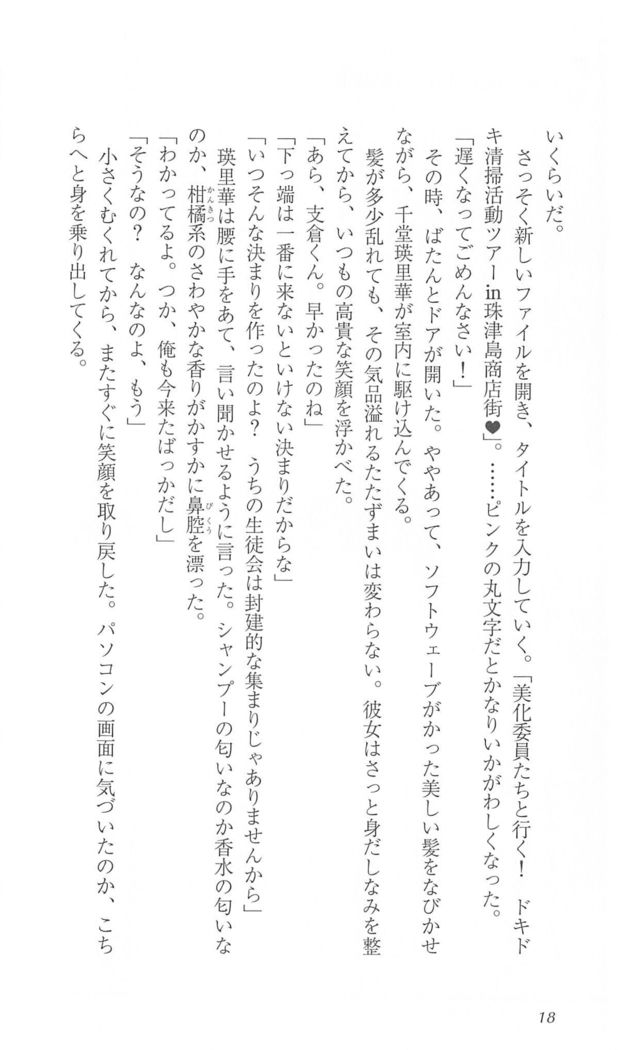 いくらいだ。
　さっそく新しいファイルを開き、タイトルを入力していく。「美化委員たちと行く！　ドキド
キ清掃活動ツアーin珠津島商店街♥」。……ピンクの丸文字だとかなりいかがわしくなった。
「遅くなってごめんなさい！」
　その時、ばたんとドアが開いた。ややあって、ソフトウェーブがかった美しい髪をなびかせ
ながら、千堂瑛里華が室内に駆け込んでくる。
　髪が多少乱れても、その気品溢れるたたずまいは変わらない。彼女はさっと身だしなみを整
えてから、いつもの高貴な笑顔を浮かべた。
「あら、支倉くん。早かったのね」
「下っ端は一番に来ないといけない決まりだからな」
「いつそんな決まりを作ったのよ？　うちの生徒会は封建的な集まりじゃありませんから」
　瑛里華は腰に手をあて、言い聞かせるように言った。シャンプーの匂いなのか香水の匂いな
のか、柑橘系のさわやかな香りがかすかに鼻腔を漂った。
かんきつ
びくう
「わかってるよ。つか、俺も今来たばっかだし」
「そうなの？　なんなのよ、もう」
　小さくむくれてから、またすぐに笑顔を取り戻した。パソコンの画面に気づいたのか、こち
らへと身を乗り出してくる。
18